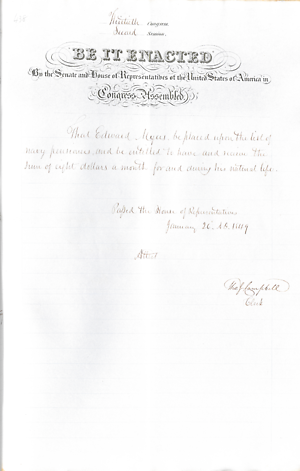 Thirtieth Congress
Second Session
BE IT ENACTED
By the Senate and House of Representatives of the United States of America in
Congress Assembled,
That Edward Myers, be placed upon the list of
navy pensioners, and be entitled to have and receive the
sum of eight dollars a month for and during his natural life.
Passed the House of Representatives
January 26. AD. 1849
Attest
Campbell
Clerk